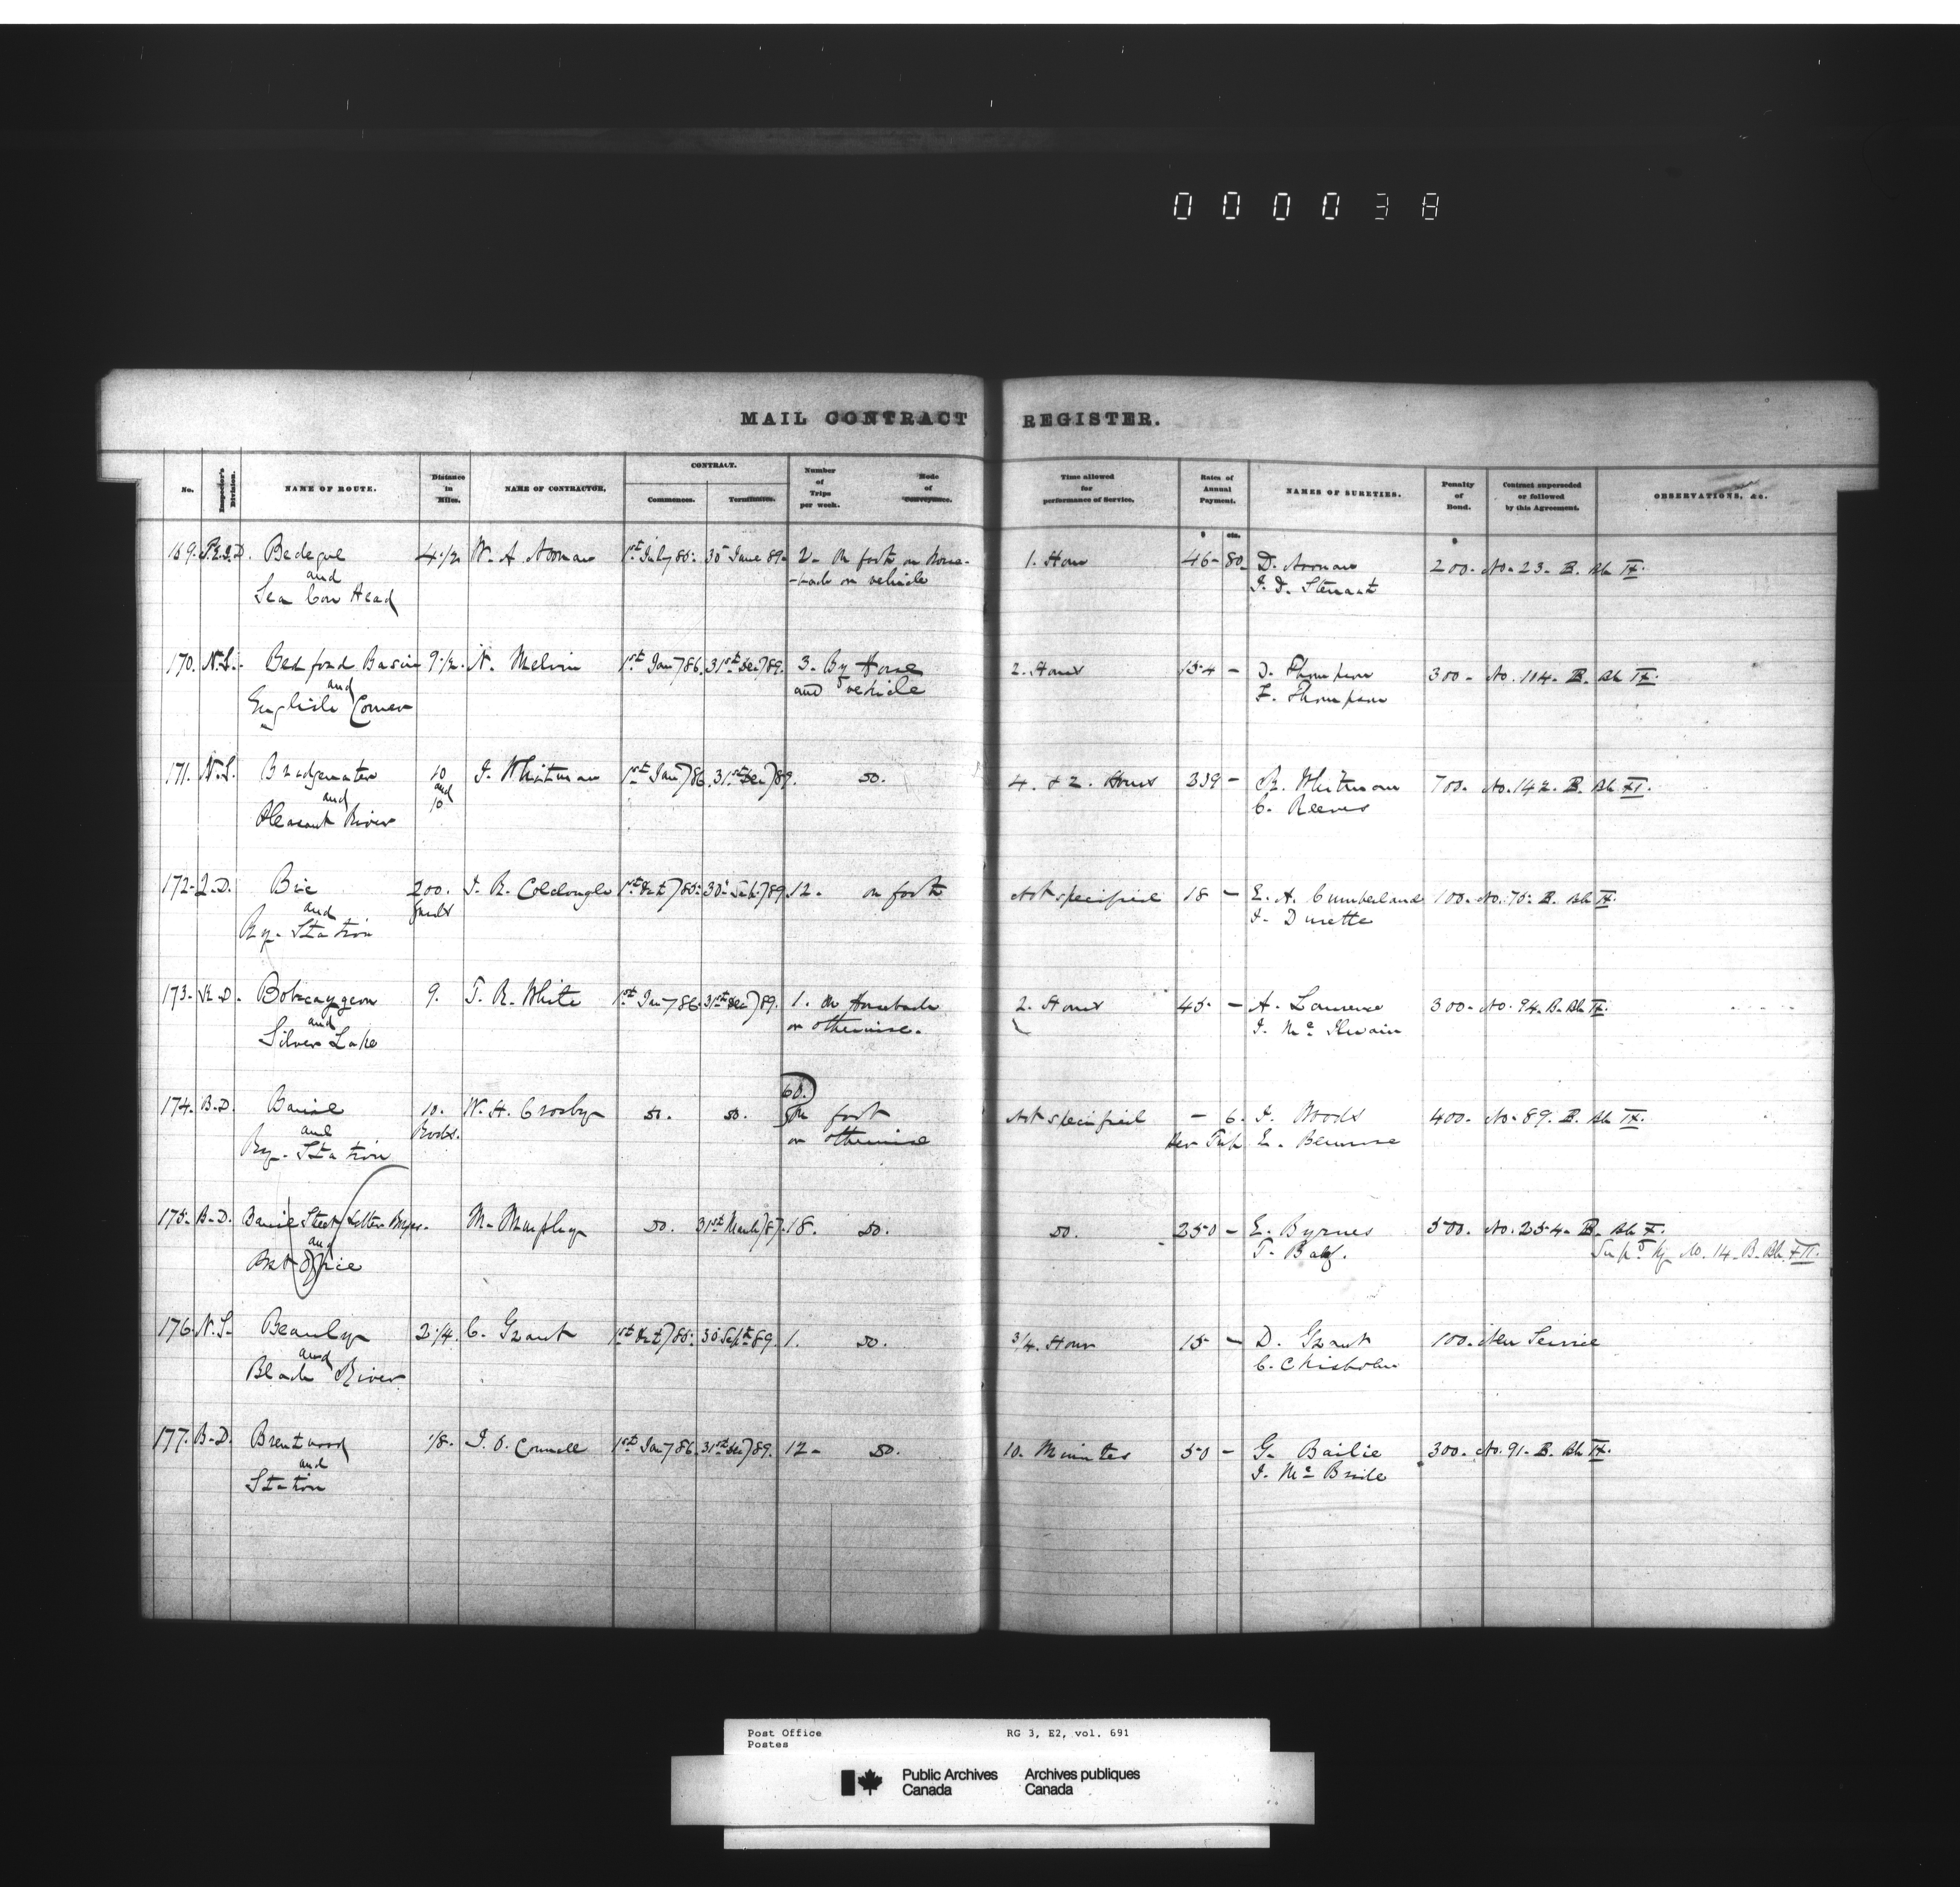 000038
MAIL CONTRACT REGISTER.
No. Inspector's Division. NAME OF ROUTE. Distance in Miles. NAME OF CONTRACTOR. CONTRACT. Commences. Terminates. Number of Trips per week. Mode of Conveyance. Time allowed for performance of Service. Rates of Annual Payment. NAMES OF SURETIES. Penalty of Bond. Contract superseded or followed by this Agreement. OBSERVATIONS, &c.
$ cts. $
169. P.E.I.D. Bedeque 4 1/2 W. A. 1st July 85. 30 June 89. 2 - On foot or horse- 1. Hour 46 - 80 D. 200. No. 23. B. Bk IX.
and -back or vehicle J. D. Stewart
Sea Cow Head
170. N.S. Bedford Basin 9 1/2. N. Melvin 1st Jany 86. 31st Decr 89. 3. By Horse 2. Hours 154 - J. Thompson 300 - No. 104. B. Bk IX.
and and vehicle F. Thompson
English Corner
171. N.S. Bridgewater 10 J. Whitman 1st Jany 86. 31st Decr 89. do. 4. & 2. Hours 339 - R. Whitman 700. No. 142. B. Bk XI.
and and C. Reeves
Pleasant River 10
172. Q.D. Bic 200. J. R. Colclough 1st Oct 85. 30 Sept 89. 12. on foot Not specified 18 - E. A. Cumberland 100. No. 75. B. Bk IX.
and yards J. Durette
Ry. Station
173. K.D. Bobcaygeon 9. T. R. White 1st Jany 86. 31st Decr 89. 1. On Horseback 2. Hours 45 - A. Lawrence 300 - No. 94. B. Bk IX.
and or otherwise. J. Mc Ilwain
Silver Lake
174. B.D. Barrie 10. W. H. Crosby do. do. 60. On foot Not specified - 6. J. Woods 400. No. 89. B. Bk IX.
and Rods. or otherwise Per Trip E.
Ry. Station
175. B.D. Barrie Street Letter Boxes. M. Murphy do. 31st March 87. 18. do. do. 250 - E. Byrnes 500. No. 254. B. Bk X.
and T. Supd by No. 14. B. Bk XII.
Post Office
176. N.S. Beauly 2 1/4. C. Grant 1st Oct 85. 30 Sept 89. 1. do. 3/4. Hour 15 - D. Grant 100. New Service
and C. Chisholm
Black River
177. B.D. Brentwood 1/8. J. O. Connell 1st Jany 86. 31st Decr 89. 12 - do. 10. Minutes 50 - G. Bailie 300. No. 91. B. Bk IX.
and J. Mc Bride
Station
Post Office RG 3, E2, vol. 691
Postes
Public Archives Archives publiques
Canada Canada